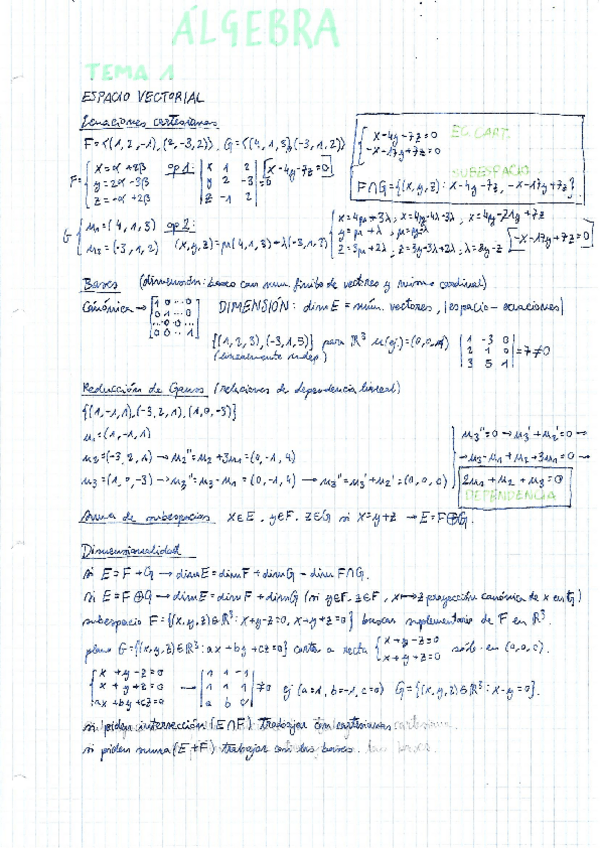 ÁLGEBRA
TEMA 1
ESPACIO VECTORIAL
Ecuaciones cartesianas
F=<(1,2,-1),(2,-3,2)> G=<(4,1,3),(-3,1,2)>
F≡ { x=α+2β
y=2α-3β
z=-α+2β
op 1: | x 1 2 |
| y 2 -3 | =0
| z -1 2 |
x-4y-7z=0
{ x-4y-7z=0
-x-17y+7z=0
EC. CART.
SUBESPACIO
F∩G={(x,y,z): x-4y-7z, -x-17y+7z}
G { u₁=(4,1,3)
u₂=(-3,1,2)
op 2:
(x,y,z)=μ(4,1,3)+λ(-3,1,2)
{ x=4μ-3λ; x=4y-4λ-3λ, x=4y-21y+7z
y=μ+λ, μ=y-λ
z=3μ+2λ, z=3y-3λ+2λ, λ=3y-z
-x-17y+7z=0
Bases (dimensión: basco con num. finito de vectores y mismo cardinal)
Canónica →
[1 0 ... 0]
[0 1 ... 0]
[0 0 ... 1]
DIMENSIÓN: dim E = núm. vectores, |espacio-ecuaciones|
{(1,2,3),(-3,1,5)} para R³ u(ej.)=(0,0,1)
(linealmente indep.)
| 1 -3 0 |
| 2 1 0 | =7≠0
| 3 5 1 |
Reducción de Gauss (relaciones de dependencia lineal)
{(1,-1,1),(-3,2,1),(1,0,-3)}
u₁=(1,-1,1)
u₂=(-3,2,1) → u₂''=u₂+3u₁=(0,-1,4)
u₃=(1,0,-3) → u₃''=u₃-u₁=(0,-1,4) → u₃''=u₃'+u₂'=(0,0,0)
u₃''=0 → u₃'+u₂'=0 →
→ u₃-u₁+u₂+3u₁=0 →
2u₁+u₂+u₃=0
DEPENDENCIA
Suma de subespacios x∈E, y∈F, z∈G si x=y+z → E=F⊕G.
Dimensionalidad
si E=F+G → dim E=dim F+dim G - dim F∩G.
si E=F⊕G → dim E=dim F+dim G (si y∈F, z∈F, x↦z proyección canónica de x en G)
subespacio F={(x,y,z)∈R³: x+y-z=0, x+y+z=0} buscar suplementario de F en R³.
plano G={(x,y,z)∈R³: ax+by+cz=0} corta a recta { x+y-z=0
x+y+z=0 sólo en (0,0,0).
{ x+y-z=0
x+y+z=0
ax+by+cz=0
→ | 1 1 -1 |
| 1 1 1 | ≠0
| a b c |
ej (a=1, b=-1, c=0) G={(x,y,z)∈R³: x-y=0}.
si piden intersección (E∩F) trabajar con cartesianas
si piden suma (E+F) trabajar con las bases.